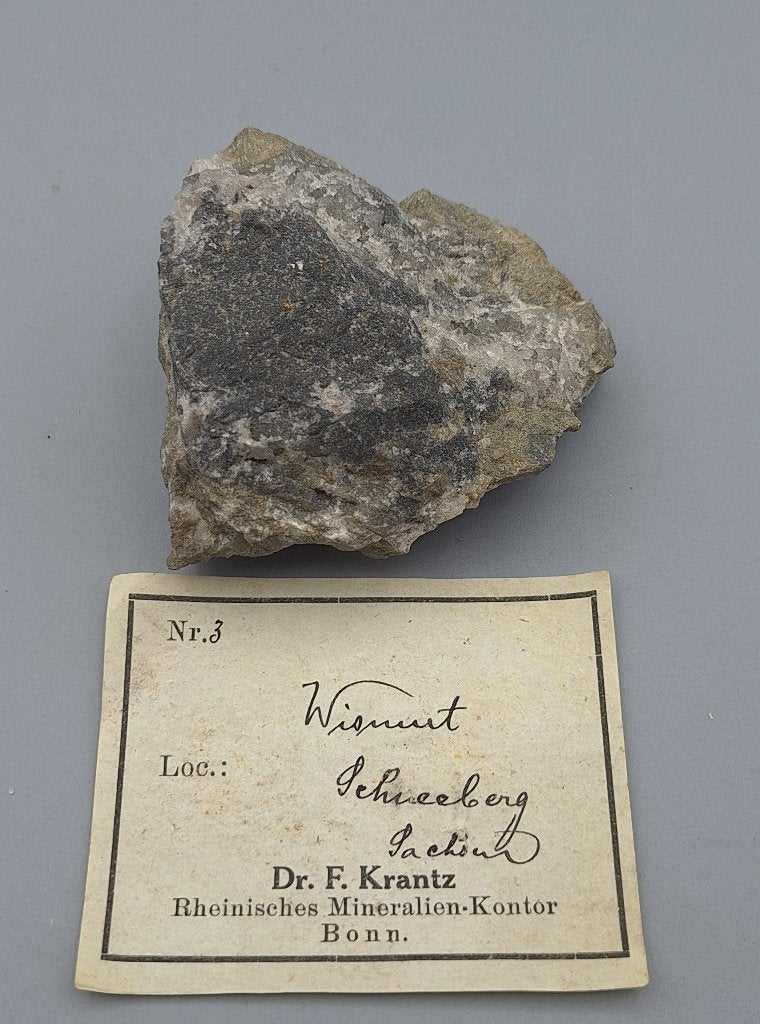 Nr. 3
Wismut
Loc.: Schneeberg
Sachsen
Dr. F. Krantz
Rheinisches Mineralien-Kontor
Bonn.